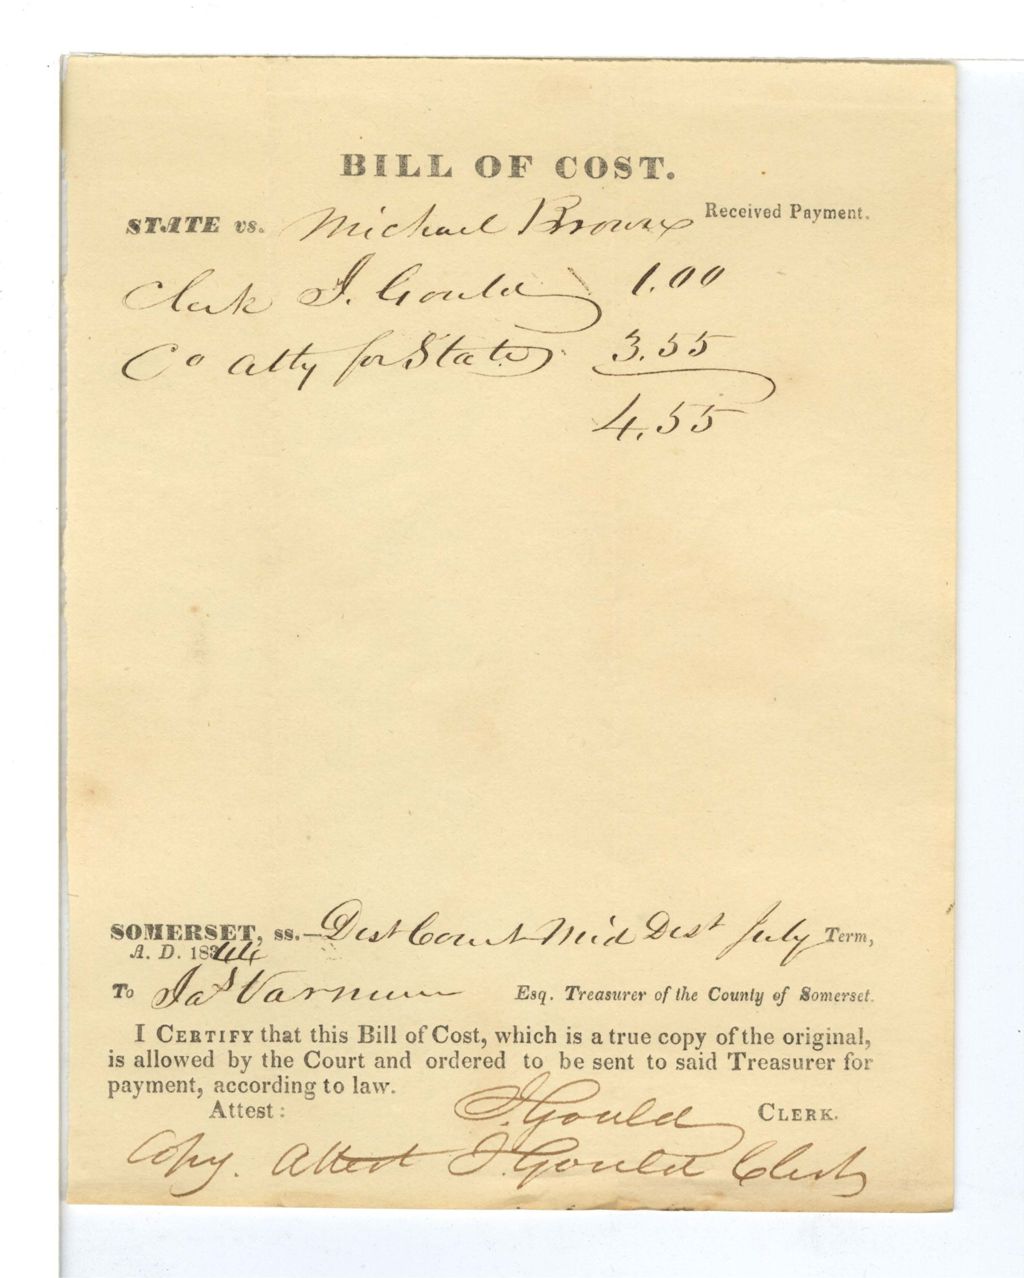 BILL OF COST.
STATE vs. Michael Brown Received Payment.
Clerk J. Gould 1.00
Co Atty for State 3.55
4.55
SOMERSET, ss.—Dist Court Mid Dist July Term,
A. D. 1844
To Jas Varnum Esq. Treasurer of the County of Somerset.
I CERTIFY that this Bill of Cost, which is a true copy of the original,
is allowed by the Court and ordered to be sent to said Treasurer for
payment, according to law.
Attest: J. Gould CLERK.
Copy. Attest J. Gould Clerk